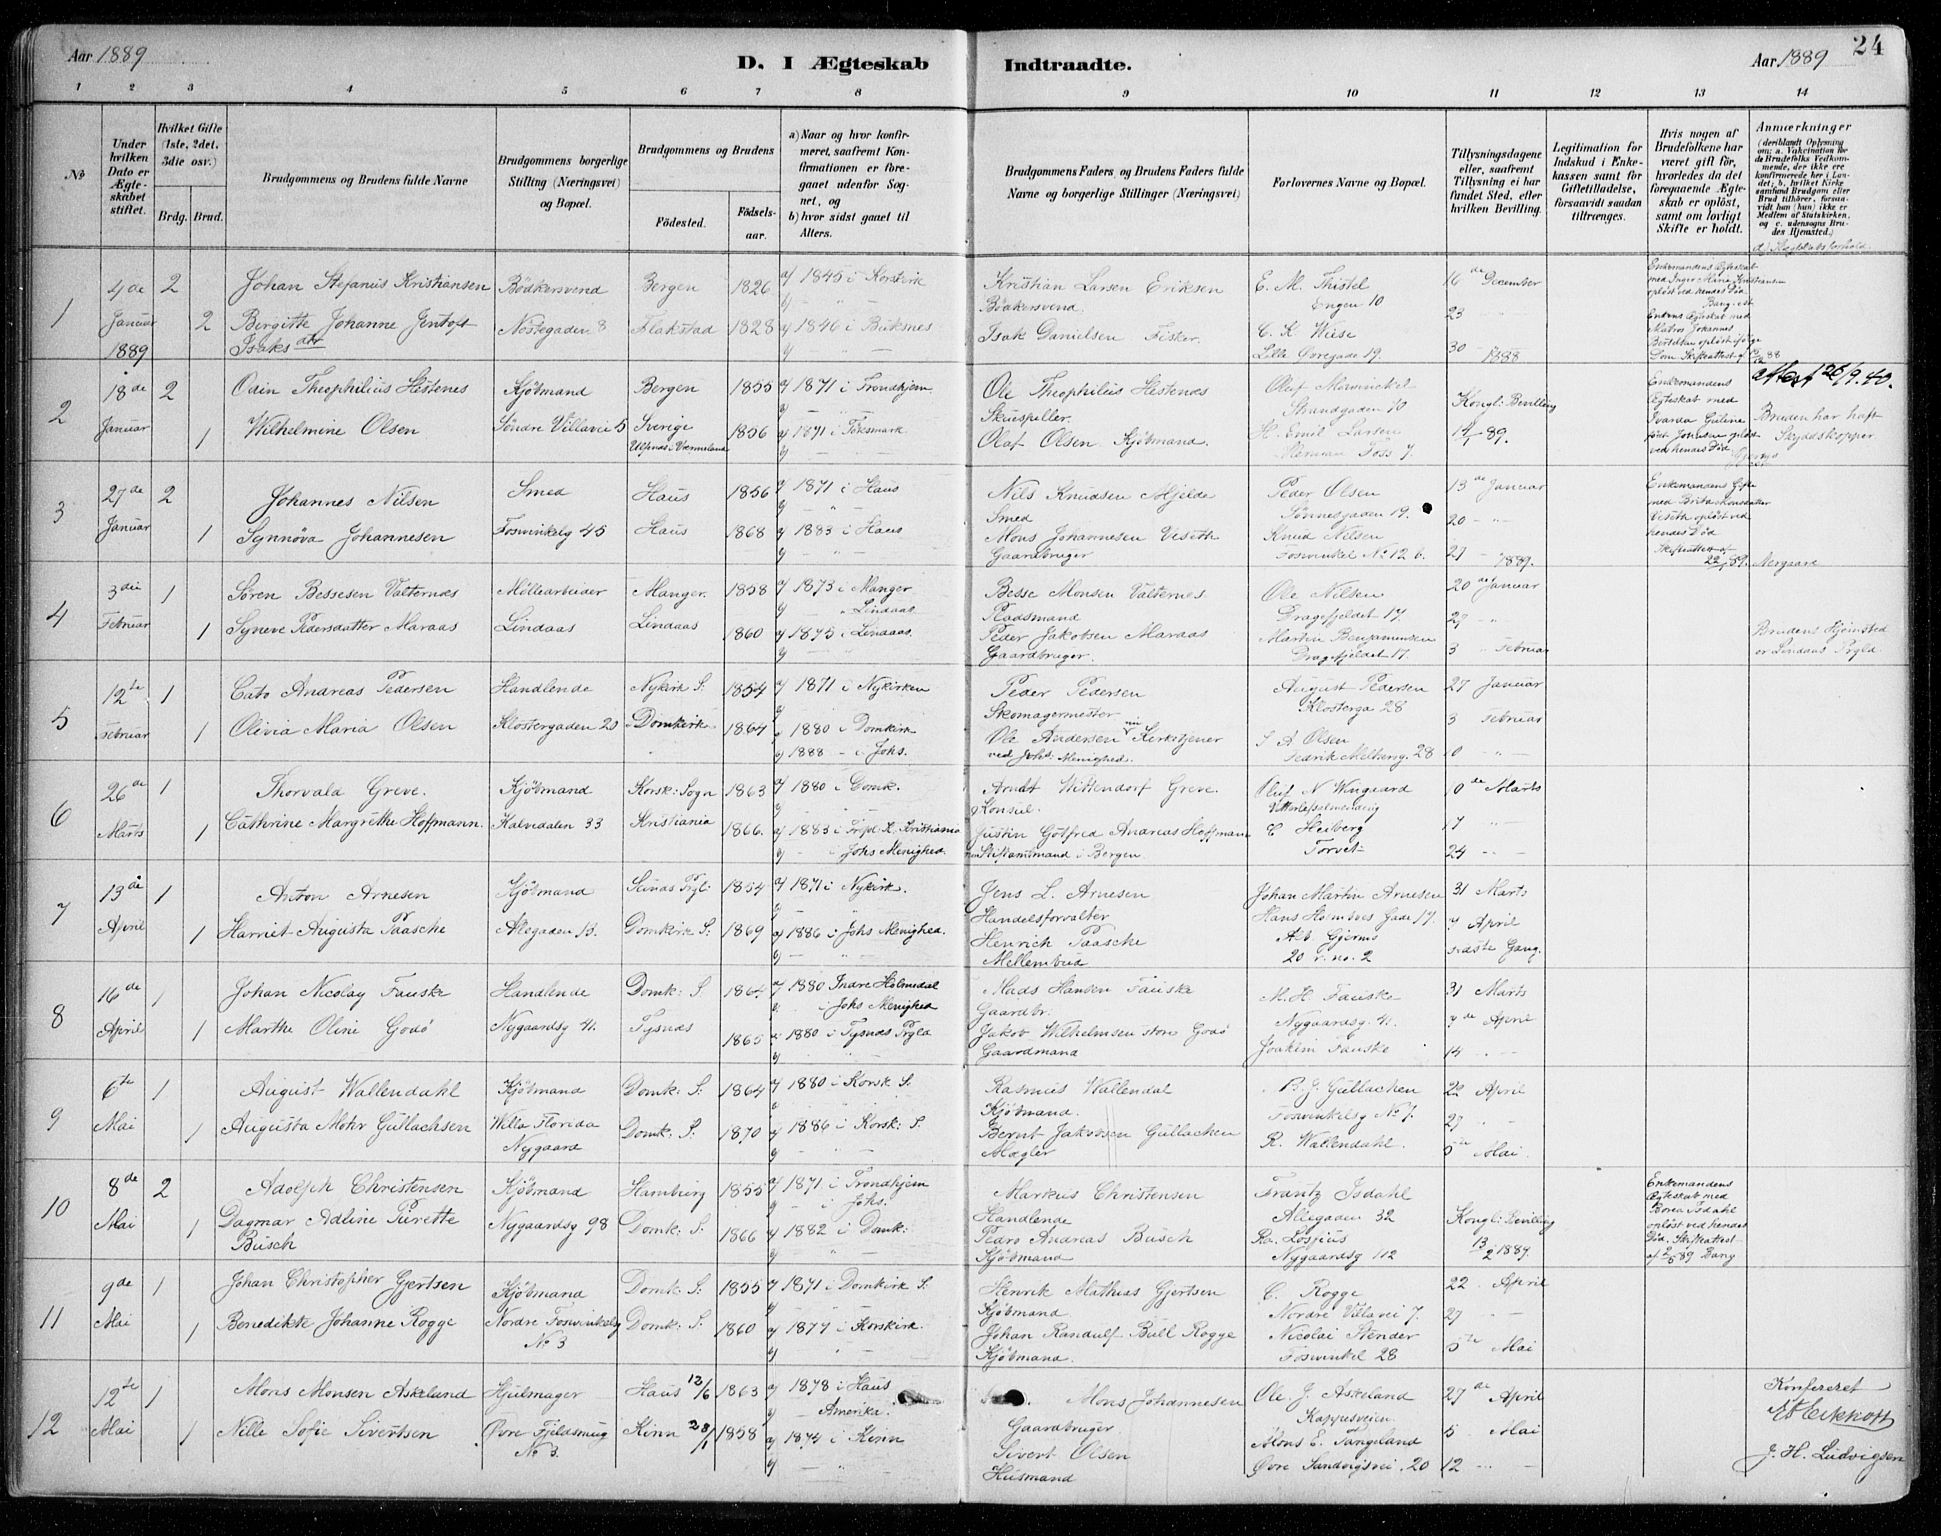 Aar 1889
D. I Ægteskab Indtraadte.
Aar 1889
24
1 2 3 4 5 6 7 8 9 10 11 12 13 14
No
Under hvilken Dato er Ægteskabet stiftet.
Hvilket Gifte (1ste, 2det, 3die osv.)
Brdg. Brud.
Brudgommens og Brudens fulde Navne
Brudgommens borgerlige Stilling (Næringsvei) og Bopæl.
Brudgommens og Brudens
Fødested.
Fødsels-aar.
a) Naar og hvor konfirmeret, saafremt Konfirmationen er foregaaet udenfor Sognet, og
b) hvor sidst gaaet til Alters.
Brudgommens Faders og Brudens Faders fulde Navne og borgerlige Stillinger (Næringsvei)
Forlovernes Navne og Bopæl.
Tillysningsdagene eller, saafremt Tillysning ei har fundet Sted, efter hvilken Bevilling.
Legitimation for Indskud i Enkekassen samt for Giftetilladelse, forsaavidt saadan tiltrænges.
Hvis nogen af Brudefolkene har været gift før, hvorledes da det foregaaende Ægteskab er opløst, samt om lovligt Skifte er holdt.
Anmærkninger
(deriblandt Oplysning om: a. Vakcination for de Brudefolks Vedkommende, der ikke ere konfirmerede her i Landet; b. hvilket Kirkesamfund Brudgom eller Brud tilhører, forsaavidt han (hun) ikke er Medlem af Statskirken, og c. udensogns Brudes Hjemsted.)
1
4de Januar 1889
2
Johan Stefanus Kristiansen
Bødkersvend
Bergen
1826
a) 1845 i Korskirk
Kristian Larsen Eriksen
Bødkersvend
E. M. Thistel
Engen 10
16de December
2
Bergitte Johanne Jentoft Isaksdtr
Nøstegaden 8
Flakstad
1828
a) 1846 i Buksnes
Isak Danielsen Fisker
C. K. Wiese
Lille Øvregade 19.
23
30 – 1888
Enkemandens Ægteskab med Inger Marie Kristiansen opløst ved hendes Død
2
18de Januar
2
Odin Theophilus Hestenes
Kjøbmand
Bergen
1855
a) 1871 i Trondhjem
Ole Theophilus Hestenes
Skuespiller.
Oluf Mowinckel
Strandgaden 10
Kongl: Bevilling
14/1 89.
1
Wilhelmine Olsen
Søndre Villavei 5
Sverige
1856
a) 1871 i Föksmark
Olaf Olsen Kjøbmand.
H. Emil Larsen
Herman Foss 7
Enkemandens Ægteskab med
opløst ved hendes Død
Attest 26/9.40.
Bruden har haft Skyddskopper
3
27de Januar
2
Johannes Nilsen
Smed
Haus
1856
a) 1871 i Haus
Nils Knudsen Mjelde
Smed
Peder Olsen
Sønnesgaden 19.
13de Januar
1
Synnøva Johannesen
Fosvinkelg 45
Haus
1868
a) 1883 i Haus
Mons Johannesen Viseth
Gaardbruger
Knud Nilsen
Fosvinkel No 12 b.
20
27 – 1889.
Enkemandens Gifte med Brita
opløst ved hendes Død
Skifteattest af
4
3die Februar
1
Søren Bessesen Valternes
Møllearbeider
Manger
1858
a) 1873 i Manger
b) – Lindaas
Besse Monsen Valternes
Pladsmand
Ole Nilsen
Dragefjeldet 17.
20de Januar
1
Syneve Pedersdatter Maraas
Lindaas
Lindaas
1860
a) 1875 i Lindaas.
Peder Jakobsen Maraas
Gaardbruger.
Martin Benjaminsen
Dragefjeldet 17.
27
3 Februar
Brudens Hjemsted er Lindaas Prgld.
5
12te Februar
1
Cato Andreas Pedersen
Handlende
Nykirk S:
1854
a) 1871 i Nykirken
Peder Pedersen
Skomagermester
August Pedersen
Klosterga 28
27 Januar
1
Olivia Maria Olsen
Klostergaden 20
Domkirk
1864
a) 1880 i Domkirk
b) 1888 – i Johs.
Ole Andersen nu Kirketjener
ved Johs: Menighed.
S A Olsen
Fedrik Meltzersg. 28
3 Februar
10
6
26de Marts
1
Thorvald Greve.
Kjøbmand
Korsk: Sogn
1863
a) 1880 i Domk.
Arndt Wittendorf Greve.
Konsul.
Oluf N Wingaard
10de Marts
1
Cathrine Margrethe Hoffmann.
Kalvedalen 33
Kristiania
1866.
a) 1883 i Trfol. K. Kristiania
b) – i Johs Menighed.
Justin Gotfred Andreas Hoffmann
Stiftamtmand i Bergen.
C Heiberg
Torvet
17
24
7
13de April
1
Anton Arnesen
Kjøbmand
Sunds Prgl:
1854
a) 1871 i Nykirk.
Jens L. Arnesen
Handelsforvalter
Johan Martin Arnesen
Hans Holmboes Gade 17.
31 Marts
1
Harriet Augusta Paasche
Allegaden 13.
Domkirk S:
1869
a) 1886 i Johs Menighed.
Henrich Paasche
Mellembud
Alb. Gjerms
20 v. no. 2
7 April
sidste Gang.
8
16de April
1
Johan Nicolay Fauske
Handlende
Domk: S.
1864
a) 1880 Indre Holmedal
b) i Johs Menighed
Mads Hansen Fauske
Gaardbr.
M. H. Fauske
Nygaardsg 41.
31 Marts
1
Marthe Oline Godø
Nygaardsg 41.
Tysnes
1865
a) 1880 i Tysnes Prgld
Jakob Wilhelmsen store Godø
Gaardmand
Joakim Fauske
7de April
14
9
6te Mai
1
August Wallendahl
Kjøbmand
Domk: S:
1864
a) 1880 i Korsk S.
Rasmus Wallendal
Kjøbmand.
B. J. Gullachsen
Fosvinkelsg No 7.
22 April
1
Augusta Mohr Gullachsen
Willa Florida
Nygaard
Domk: S:
1870
a) 1886 i Korsk: S.
Bernt Jakobsen Gullachsen
Mægler
R. Wallendahl.
27
5te Mai.
10
8de Mai
2
Adolph Christensen
Kjøbmand
Hamburg
1855
a) 1871 i Trondhjem
b) – i Johs.
Markus Christensen
Handlende
Frantz Isdahl
Allegaden 32
Kongl: Bevilling
13/2 1889.
1
Dagmar Adline Pierette Busch
Nygaardsg 98
Domk: S:
1866
a) 1882 i Domk:
Pedro Andreas Busch
Kjøbmand
Ra. Losjeus
Nygaardsg 112
Enkemandens Ægteskab med Borea Isdahl opløst ved hendes Død. Skifteattest af 2/5 89 Bang
11
9de Mai
1
Johan Christopher Gjertsen
Kjøbmand
Domk: S:
1855
a) 1871 i Domkirk S:
Henrik Mathias Gjertsen
Kjøbmand
C. Rogge
Nordre Villavei 7.
22 April
1
Benedikte Johanne Rogge
Nordre Fosvinkelg No 3
Domk: S.
1860
a) 1877 i Korskirk.
Johan Randulf Bull Rogge
Kjøbmand.
Nicolai Stender
Fosvinkel 28
27
5te Mai
12
12te Mai
1
Mons Monsen Askeland
Hjulmager
Haus 12/6
1863
a) 1878 i Haus
b) – Amerika.
Mons Johannesen
Gaardbruger
Ole J. Askeland
Kappesveien
27de April
1
Nille Sofie Sivertsen
Øvre Fjeldsmug No 3.
Kinn 23/1
1858
a) 1874 i Kinn
Sivert Olsen
Husmand
Mons E. Tangeland
Øvre Sandvigsvei. 20
5 Mai
12
Konfereret
J. H. Ludvigsen